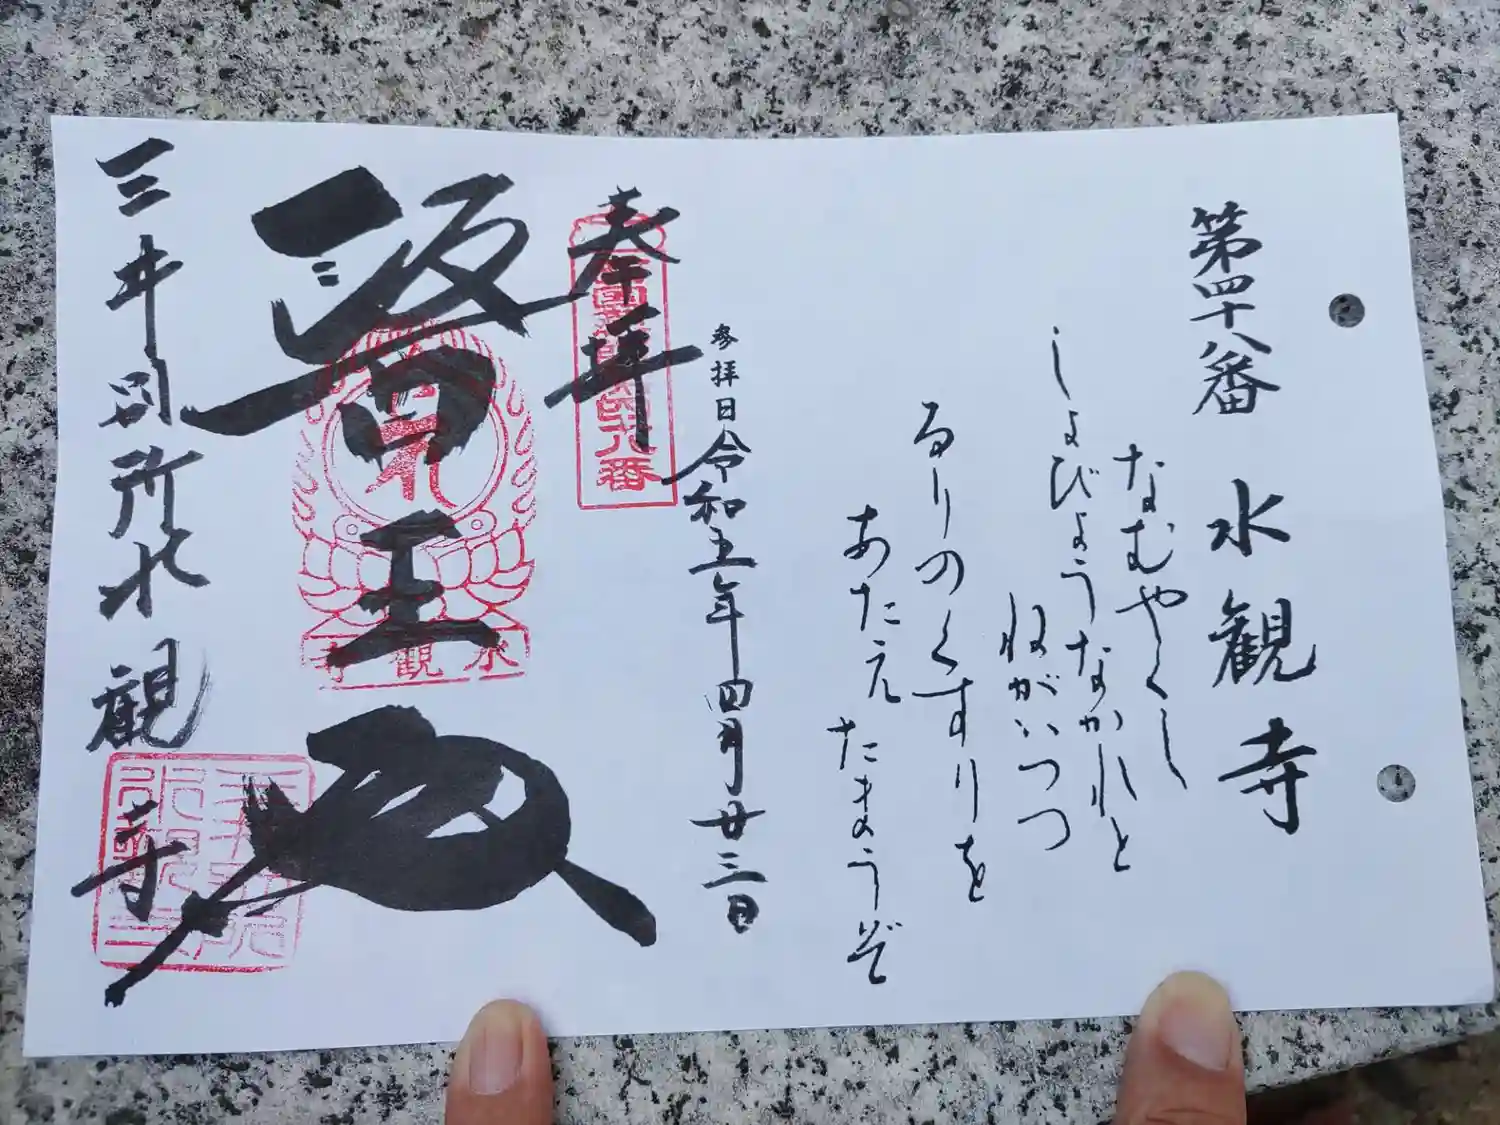 第四十八番 水観寺
なむやくし
しょびょうなかれと
ねがいつつ
るりのくすりを
あたえたまうぞ
参拝日令和五年四月廿三日
奉拝
西国薬師第四十八番
醫王殿
水観寺
三井別所水観寺